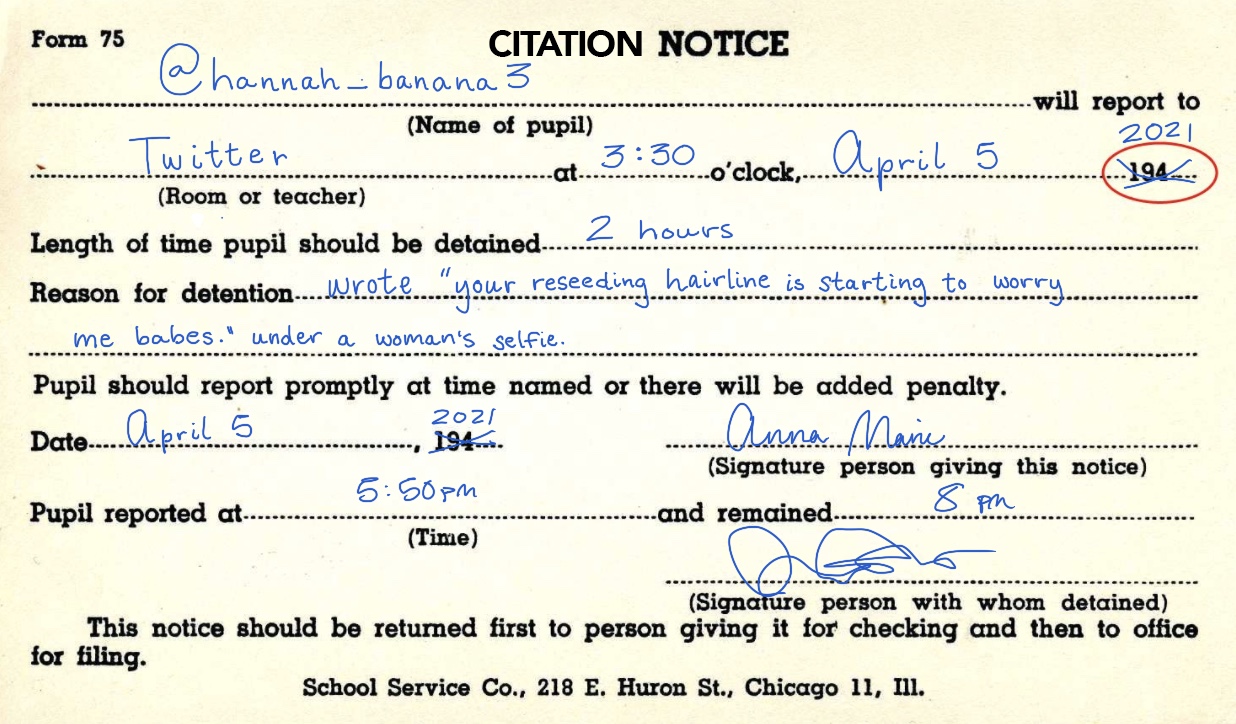 Form 75 CITATION NOTICE
@hannah_banana3
will report to
(Name of pupil)
2021
Twitter at 3:30 o'clock, April 5 194
(Room or teacher)
Length of time pupil should be detained 2 hours
Reason for detention wrote "your reseeding hairline is starting to worry
me babes." under a woman's selfie.
Pupil should report promptly at time named or there will be added penalty.
2021
Date April 5, 194 Anna Marie
(Signature person giving this notice)
Pupil reported at 5:50pm and remained 8 pm
(Time)
(Signature person with whom detained)
This notice should be returned first to person giving it for checking and then to office
for filing.
School Service Co., 218 E. Huron St., Chicago 11, Ill.